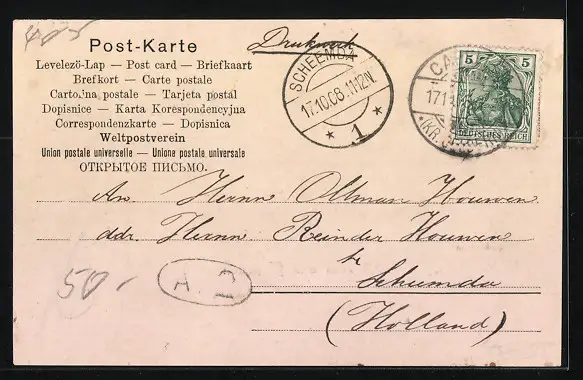 Post-Karte
Levelezö-Lap — Post card — Briefkaart
Brefkort — Carte postale
Cartolina postale — Tarjeta postál
Dopisnice — Karta Korespondencyjna
Correspondenzkarte — Dopisnica
Weltpostverein
Union postale universelle — Unione postale universale
ОТКРЫТОЕ ПИСЬМО.
Drukwerk
SCHEEMDA
17.10.08.11-12N.
* 1 *
5 5
DEUTSCHES REICH
An Herrn Oltman Houwen
adr. Herrn Reinder Houwen
te
Schumda
(Holland)
50.-
A. 2